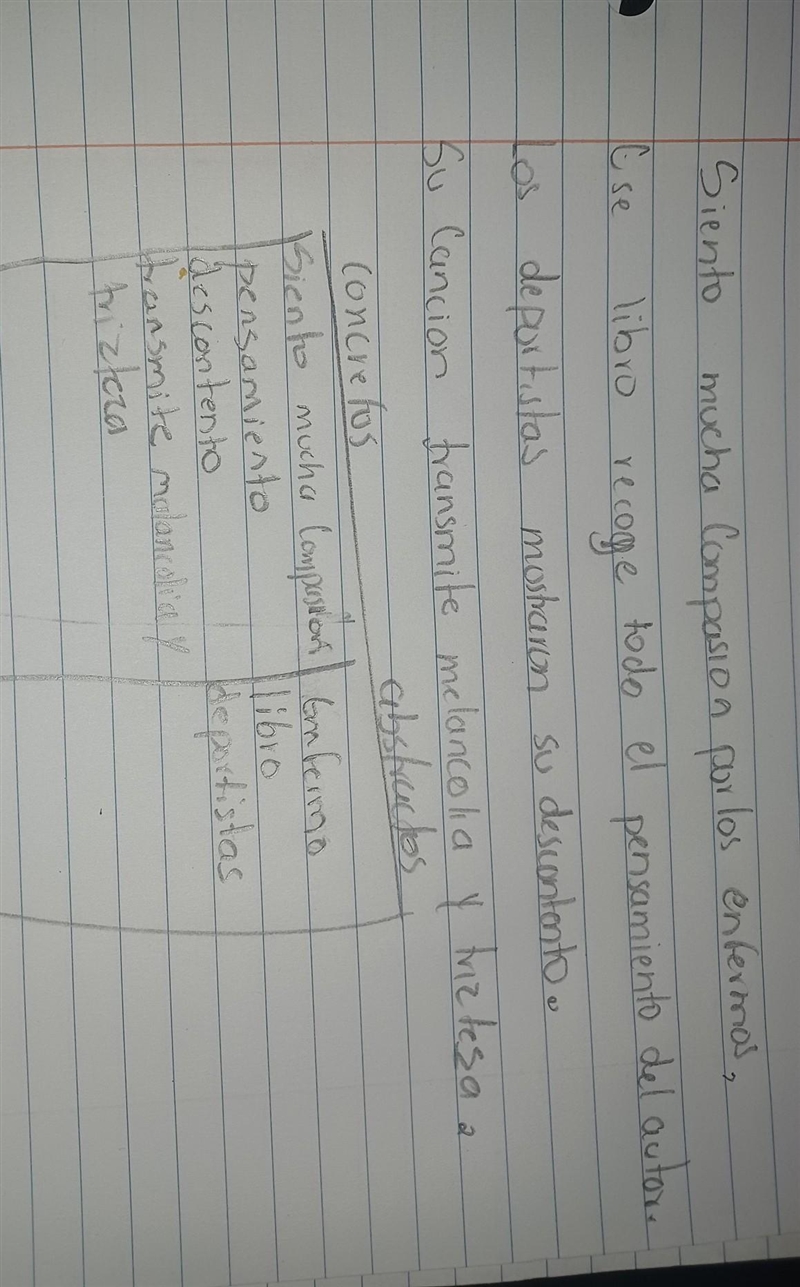 Siento mucha Compasion por los enfermos,
Ese libro recoge todo el pensamiento del autor.
Los deportistas mostraron su descontento.
Su Cancion transmite melancolia y triztesa.
Concretos abstractos
Siento mucha Compasion Emfermo
pensamiento libro
descontento deportistas
transmite melancolia y
trizteza